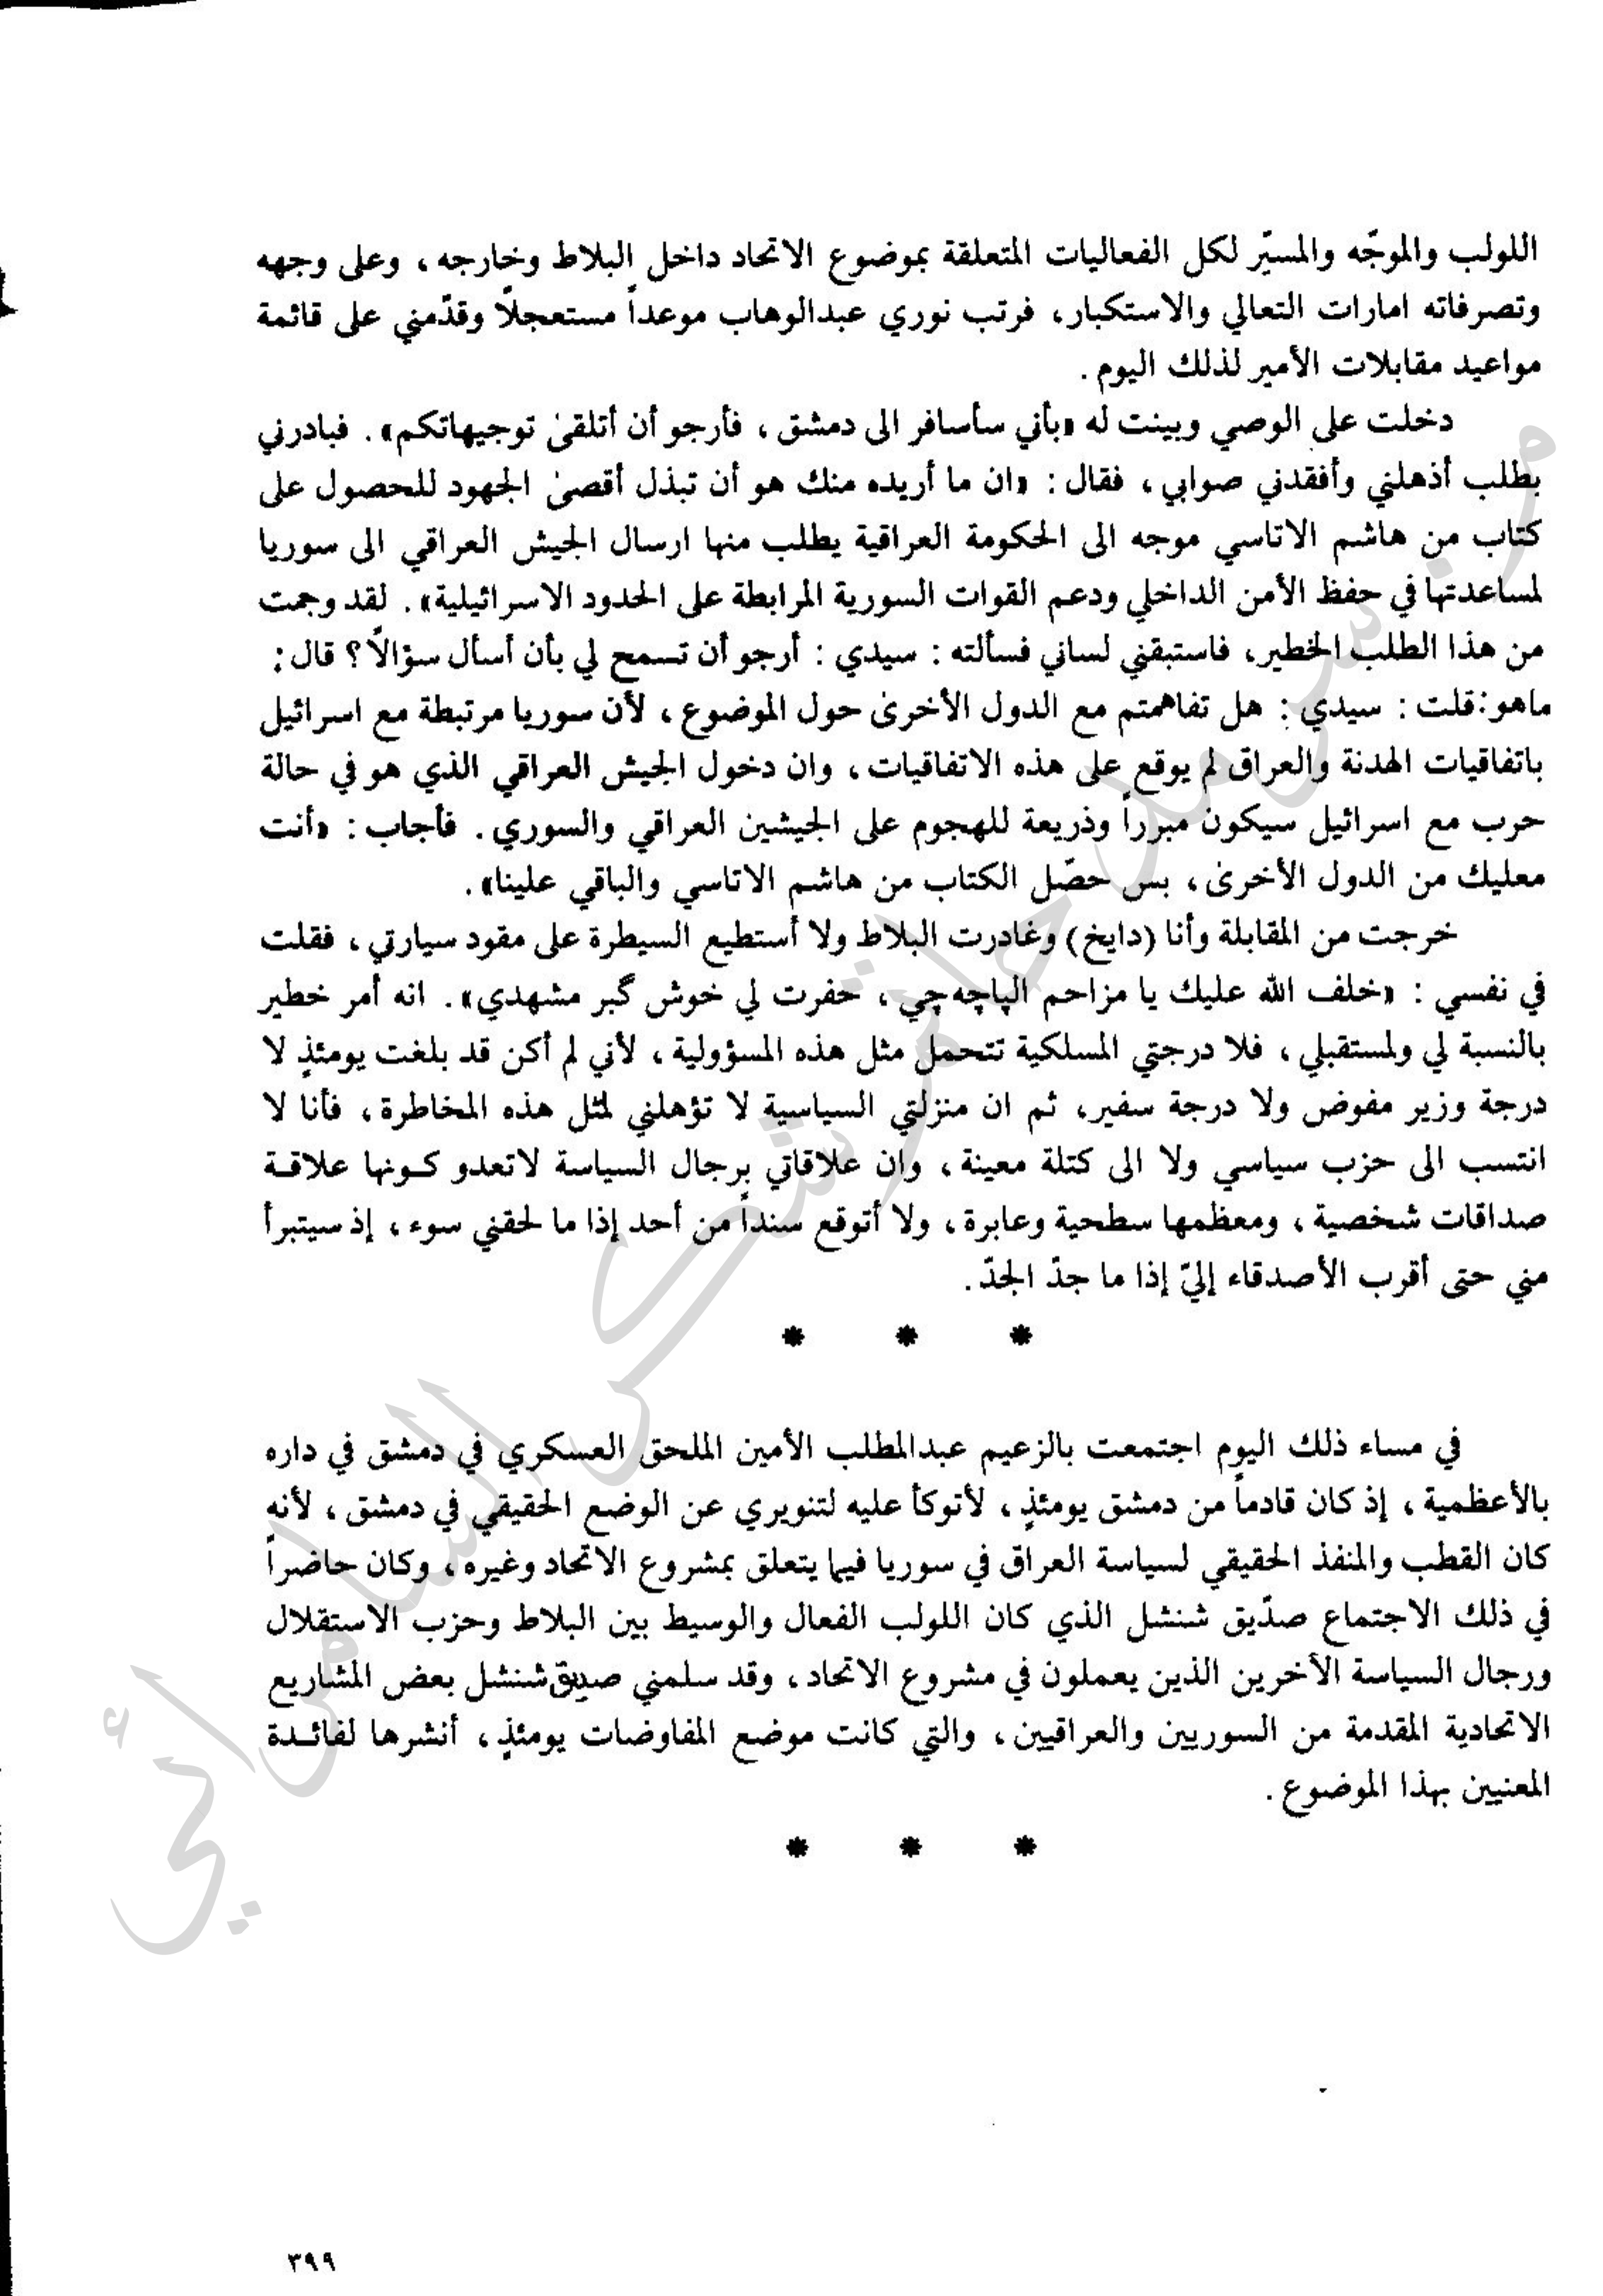 اللولب والموجّه والمسيّر لكل الفعاليات المتعلقة بموضوع الاتحاد داخل البلاط وخارجه ، وعلى وجهه
وتصرفاته امارات التعالي والاستكبار، فرتب نوري عبدالوهاب موعداً مستعجلاً وقدّمني على قائمة
مواعيد مقابلات الأمير لذلك اليوم .
دخلت على الوصي وبينت له «بأني سأسافر الى دمشق ، فأرجو أن أتلقىٰ توجيهاتكم» . فبادرني
بطلب أذهلني وأفقدني صوابي ، فقال : «ان ما أريده منك هو أن تبذل أقصىٰ الجهود للحصول على
كتاب من هاشم الاتاسي موجه الى الحكومة العراقية يطلب منها ارسال الجيش العراقي الى سوريا
لمساعدتها في حفظ الأمن الداخلي ودعم القوات السورية المرابطة على الحدود الاسرائيلية» . لقد وجمت
من هذا الطلب الخطير، فاستبقني لساني فسألته : سيدي : أرجو أن تسمح لي بأن أسأل سؤالاً ؟ قال :
ماهو:قلت : سيدي : هل تفاهمتم مع الدول الأخرىٰ حول الموضوع ، لأن سوريا مرتبطة مع اسرائيل
باتفاقيات الهدنة والعراق لم يوقع على هذه الاتفاقيات ، وان دخول الجيش العراقي الذي هو في حالة
حرب مع اسرائيل سيكون مبرراً وذريعة للهجوم على الجيشين العراقي والسوري . فأجاب : «أنت
معليك من الدول الأخرىٰ ، بس حصّل الكتاب من هاشم الاتاسي والباقي علينا» .
خرجت من المقابلة وأنا (دايخ) وغادرت البلاط ولا أستطيع السيطرة على مقود سيارتي ، فقلت
في نفسي : «خلف الله عليك يا مزاحم الپاچه چي ، حفرت لي خوش گبر مشهدي» . انه أمر خطير
بالنسبة لي ولمستقبلي ، فلا درجتي المسلكية تتحمل مثل هذه المسؤولية ، لأني لم أكن قد بلغت يومئذٍ لا
درجة وزير مفوض ولا درجة سفير، ثم ان منزلتي السياسية لا تؤهلني لمثل هذه المخاطرة ، فأنا لا
انتسب الى حزب سياسي ولا الى كتلة معينة ، وان علاقاتي برجال السياسة لاتعدو كونها علاقة
صداقات شخصية ، ومعظمها سطحية وعابرة ، ولا أتوقع سنداً من أحد إذا ما لحقني سوء ، إذ سيتبرأ
مني حتى أقرب الأصدقاء إليّ إذا ما جدّ الجدّ .
* * *
في مساء ذلك اليوم اجتمعت بالزعيم عبدالمطلب الأمين الملحق العسكري في دمشق في داره
بالأعظمية ، إذ كان قادماً من دمشق يومئذٍ ، لأتوكأ عليه لتنويري عن الوضع الحقيقي في دمشق ، لأنه
كان القطب والمنفذ الحقيقي لسياسة العراق في سوريا فيما يتعلق بمشروع الاتحاد وغيره ، وكان حاضراً
في ذلك الاجتماع صدّيق شنشل الذي كان اللولب الفعال والوسيط بين البلاط وحزب الاستقلال
ورجال السياسة الآخرين الذين يعملون في مشروع الاتحاد ، وقد سلمني صديق شنشل بعض المشاريع
الاتحادية المقدمة من السوريين والعراقيين ، والتي كانت موضع المفاوضات يومئذٍ ، أنشرها لفائدة
المعنيين بهذا الموضوع .
* * *
٣٩٩